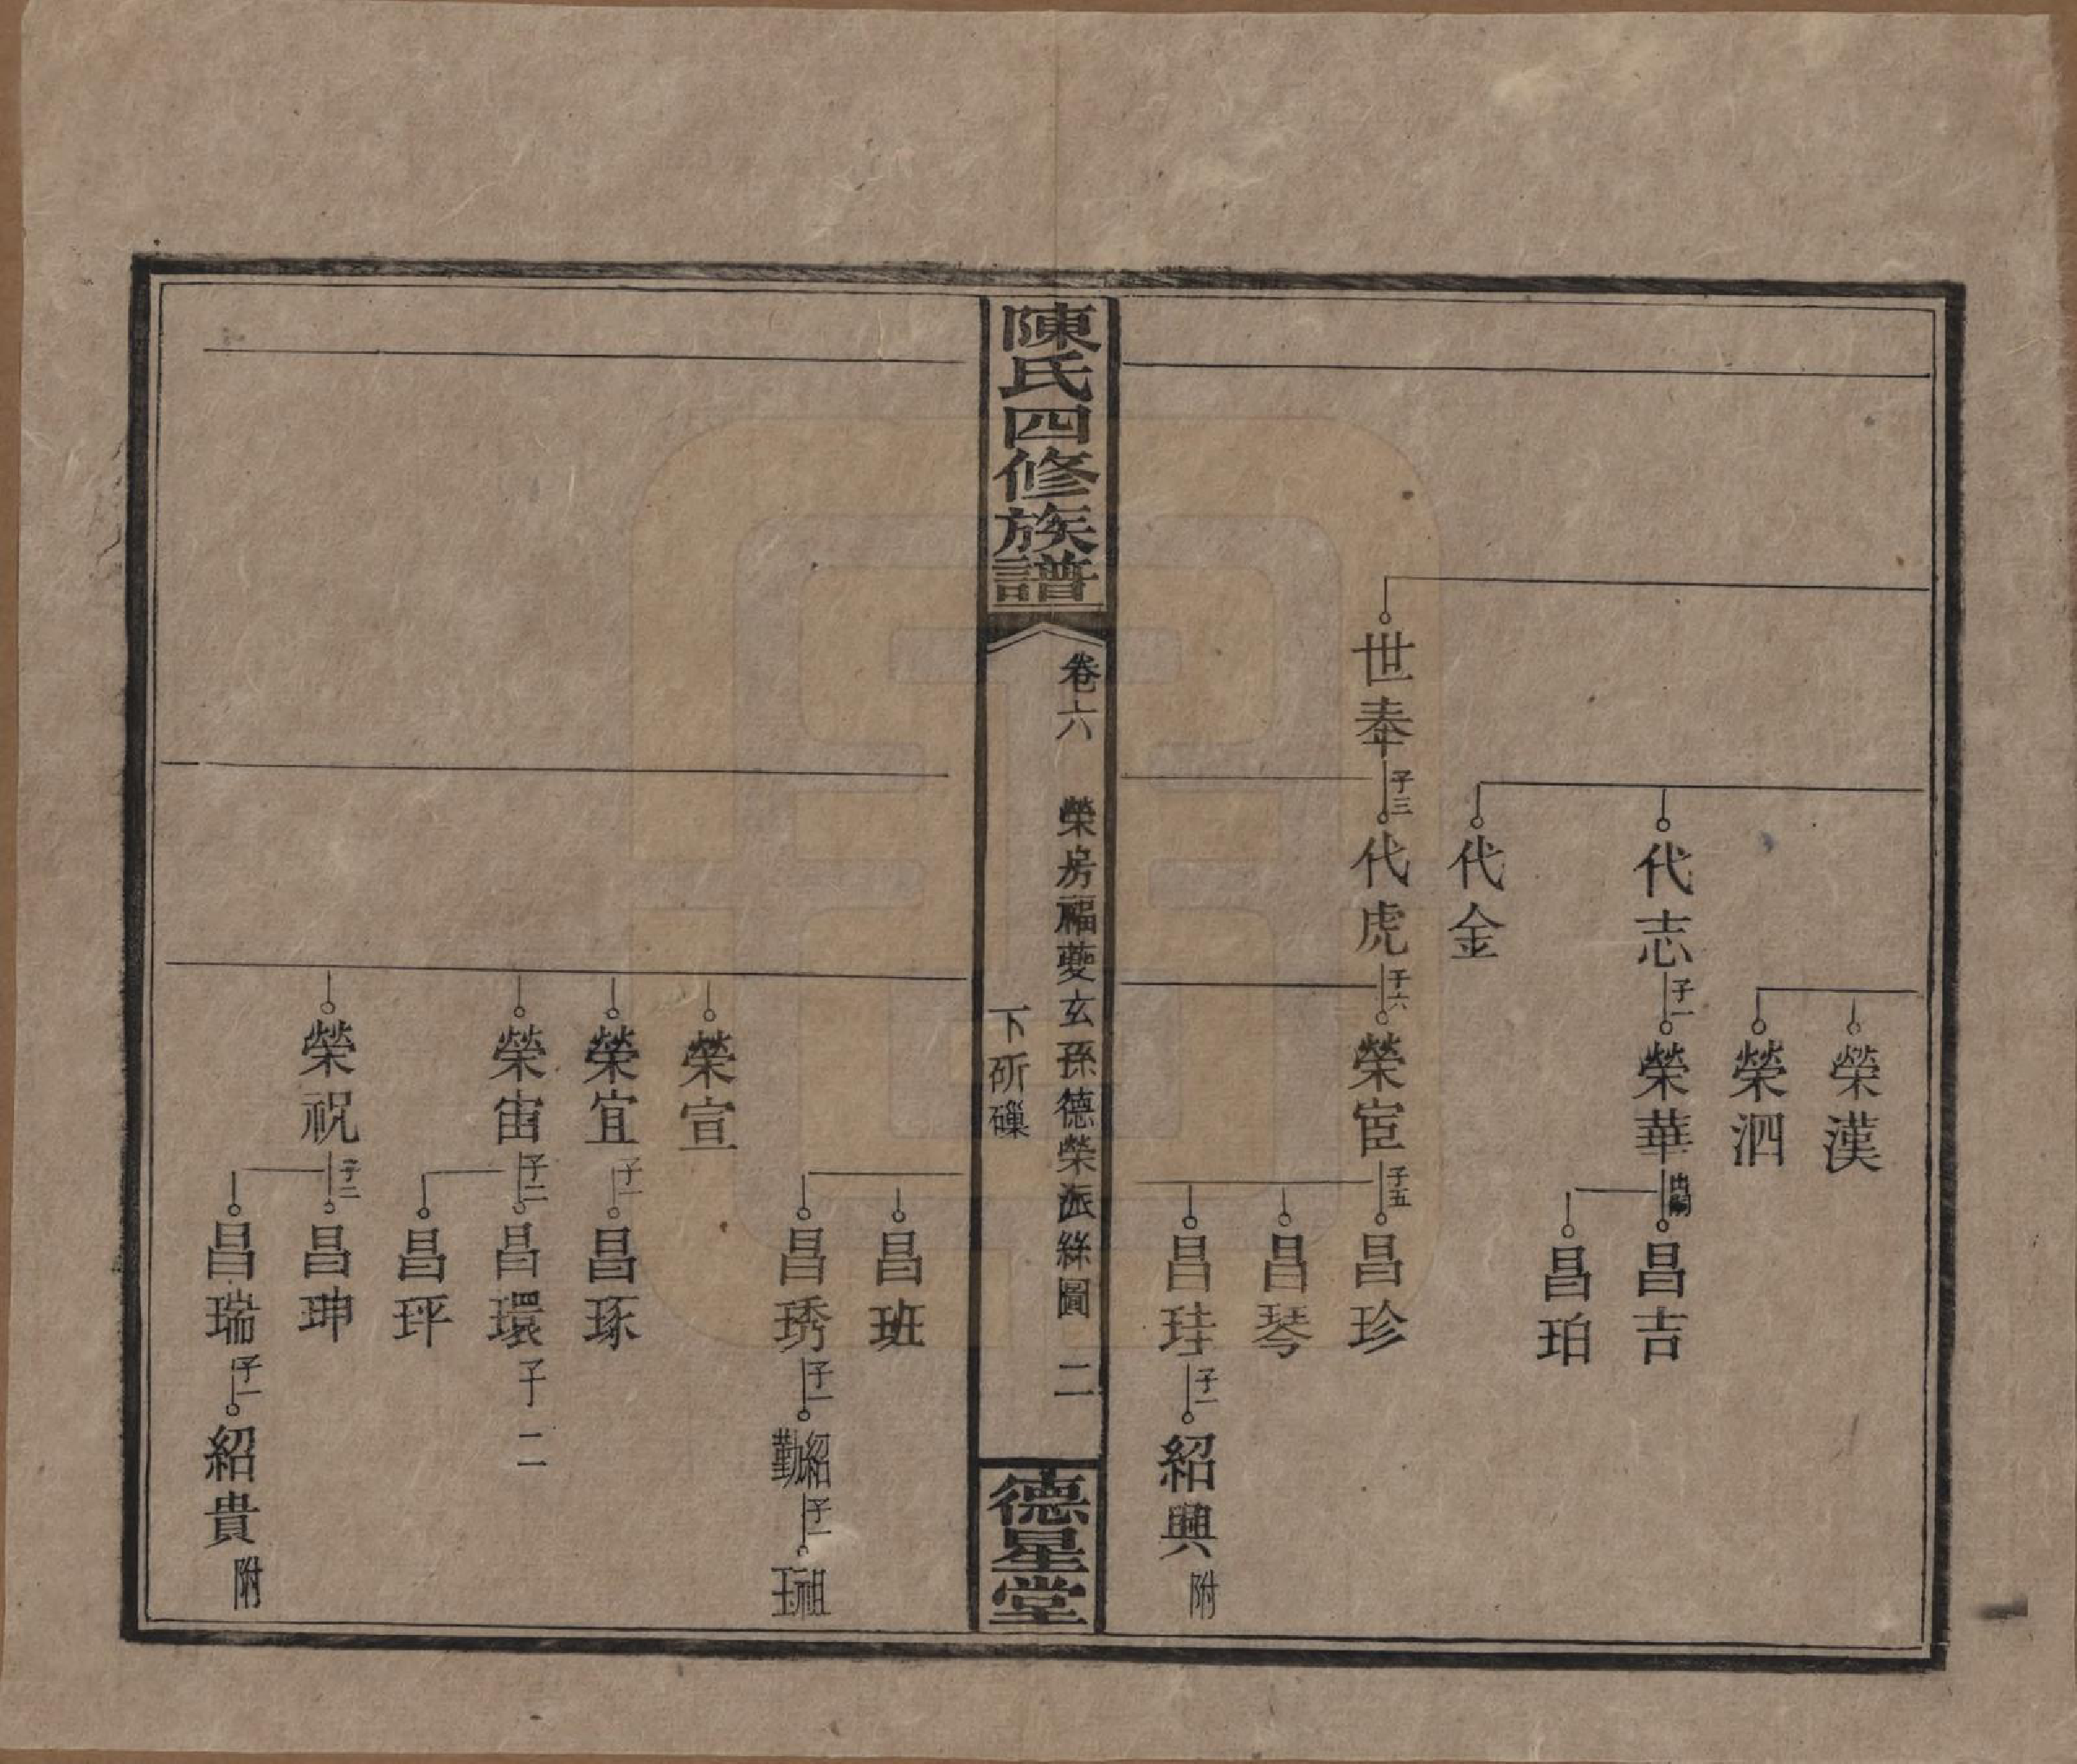 榮漢
榮泗
代志 子一 榮華 出嗣 昌吉
昌珀
代金
世奉 子三 代虎 子六 榮宦 子五 昌珍
昌琴
昌珪 子一 紹興 附
陳氏四修族譜
卷六 榮房福夔玄孫德榮派綵圖 二
下斫磥
德星堂
昌班
昌琇 子一 紹勤 子一 祖珏
榮宣
榮宜 子一 昌琢
榮宙 子二 昌環 子二
昌玶
榮祝 子二 昌珅
昌瑞 子一 紹貴 附